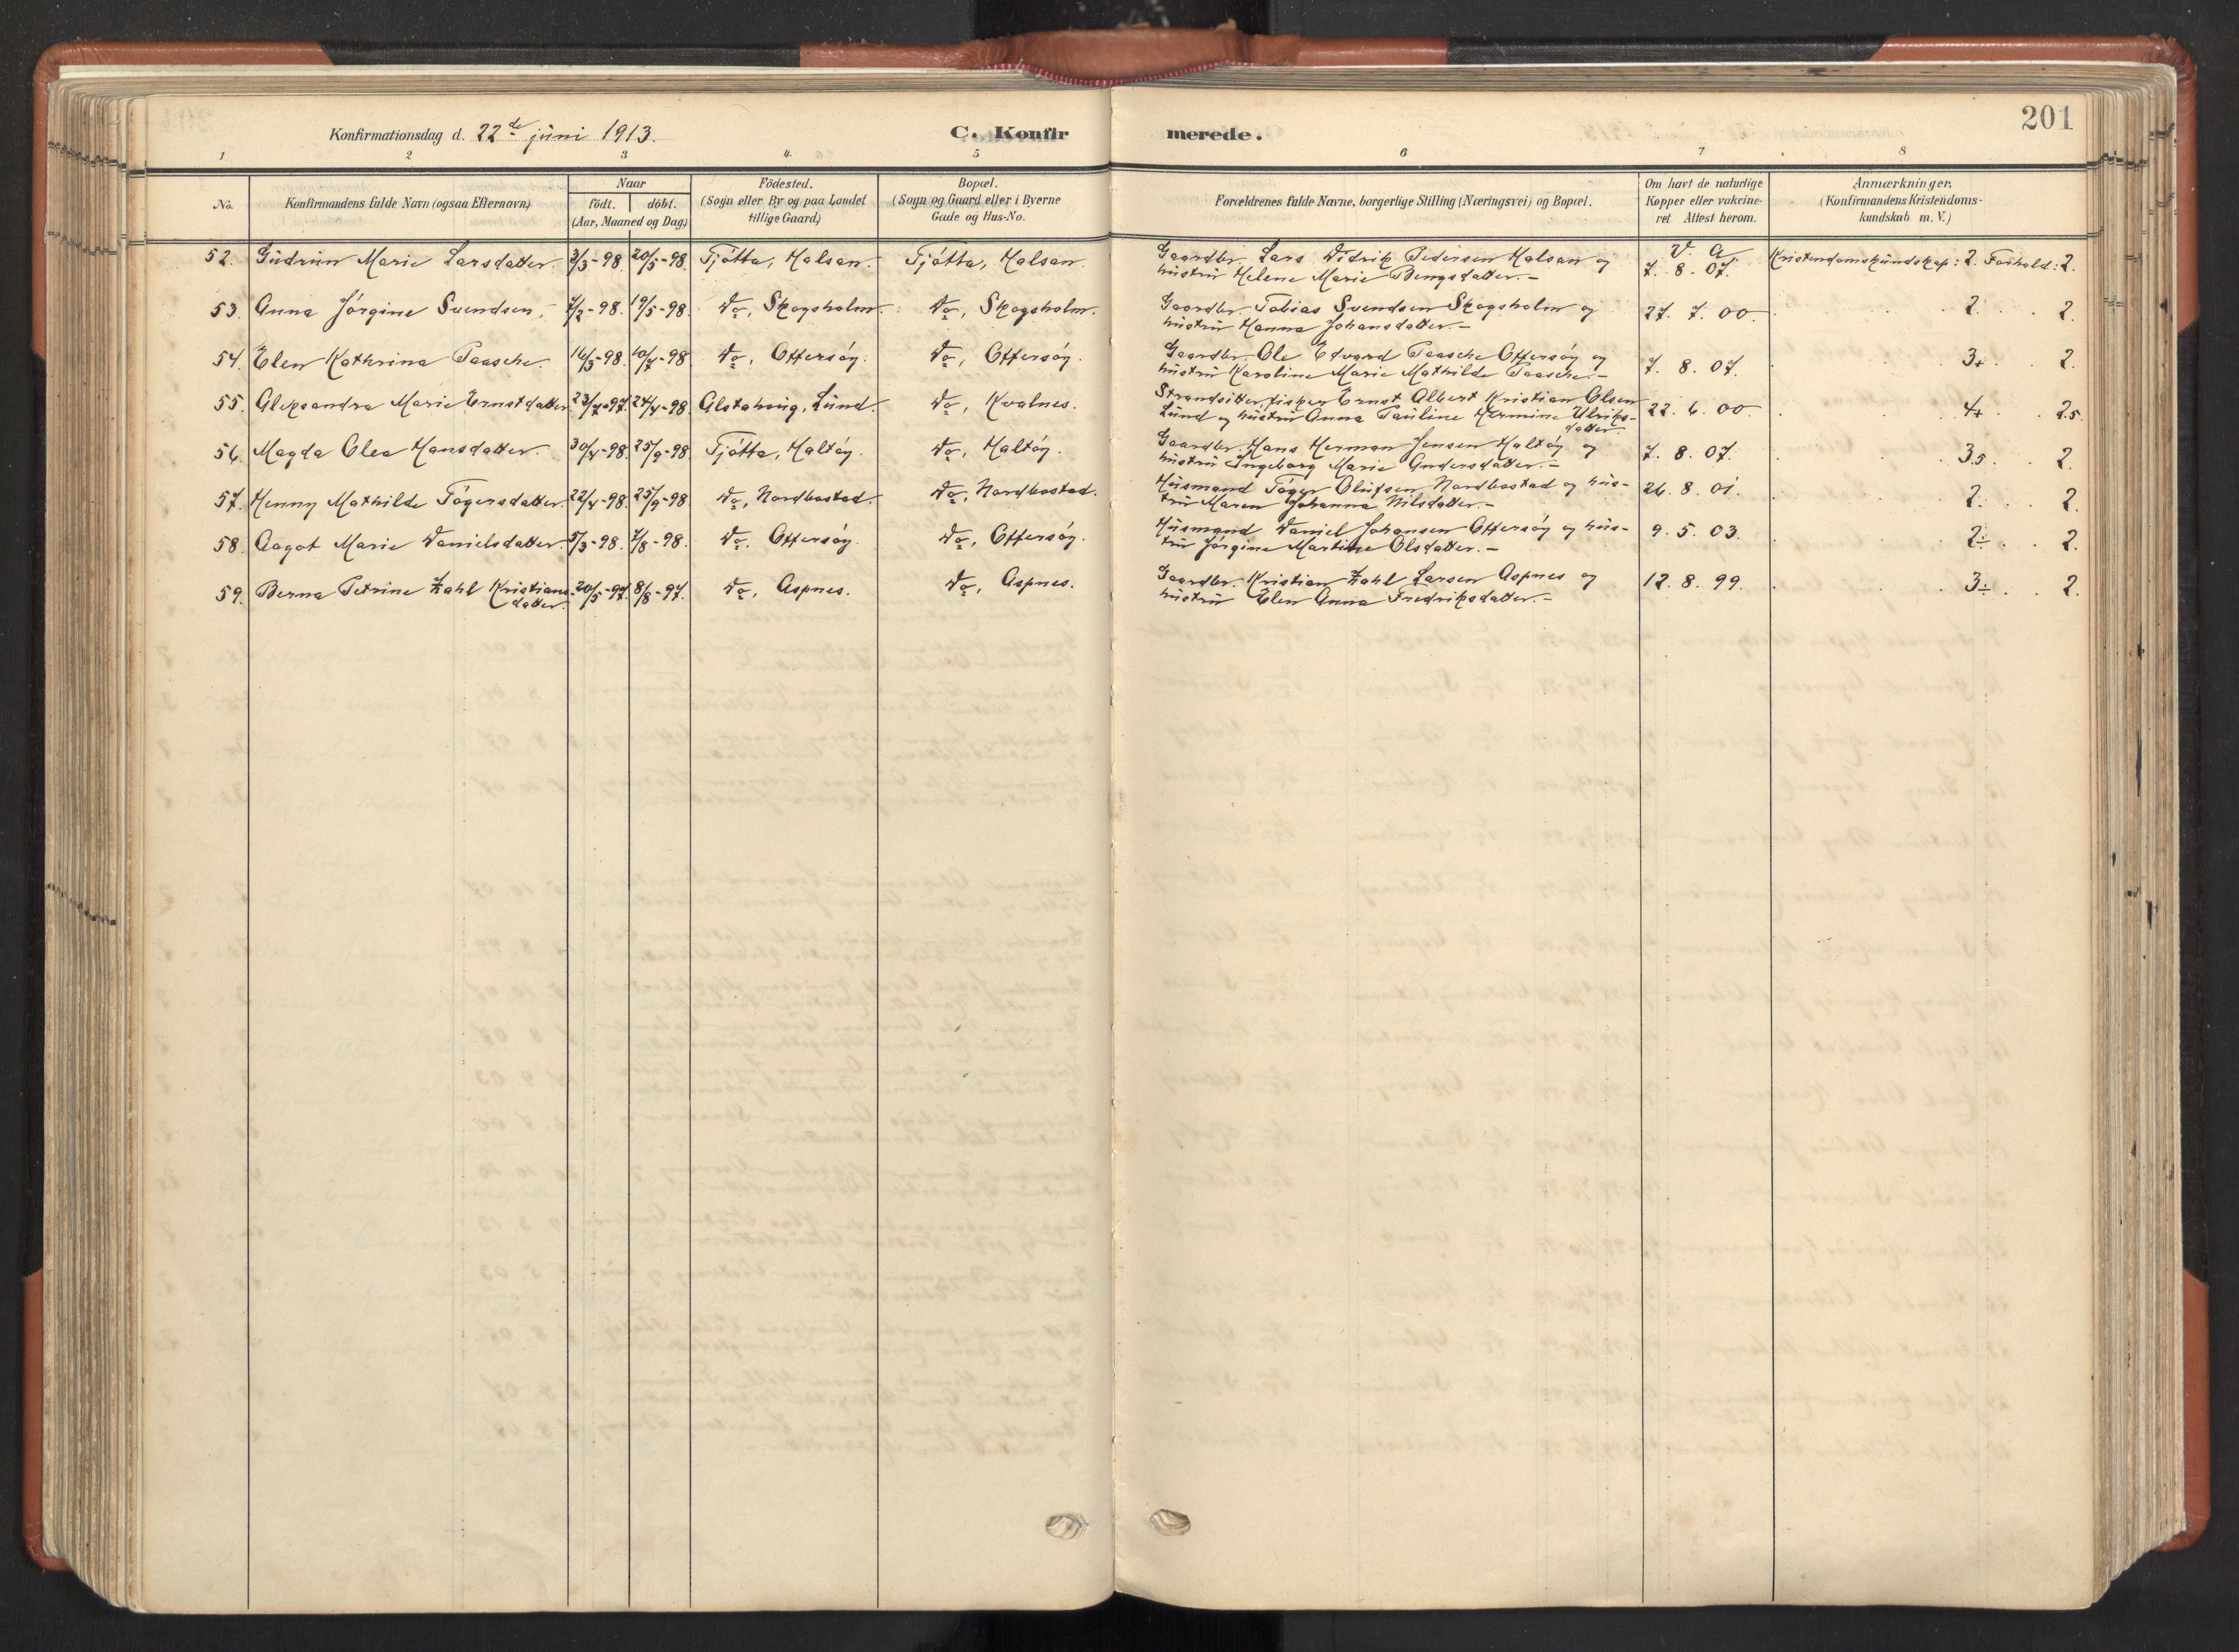 201
Konfirmationsdag d. 22de juni 1913.
C. Konfir merede.
1 2 3 4 5 6 7 8
No.
Konfirmandens fulde Navn (ogsaa Efternavn)
Naar
födt. döbt.
(Aar, Maaned og Dag)
Födested.
(Sogn eller By og paa Landet
tillige Gaard)
Bopæl.
(Sogn og Gaard eller i Byerne
Gade og Hus-No.
Forældrenes fulde Navne, borgerlige Stilling (Næringsvei) og Bopæl.
Om havt de naturlige
Kopper eller vakcine-
ret. Attest herom.
Anmærkninger.
(Konfirmandens Kristendoms-
kundskab m. V.)
52. Gudrun Marie Larsdatter. 3/3-98. 20/5-98. Tjøtta, Halsan. Tjøtta, Halsan. Gaardbr. Lars Didrik Pedersen Halsan og V. A. Kristendomskundskap: 2. Forhold: 2.
hustru Helene Marie Bengsdatter.- 7. 8. 07.
53. Anna Jørgine Svendsen. 7/2-98. 19/5-98. Do, Skogsholm. Do, Skogsholm. Gaardbr. Tobias Svendsen Skogsholm og 27. 7. 00. 2. 2.
hustru Hanna Johansdatter.-
54. Elen Kathrina Paasche. 16/3-98. 10/7-98. Do, Offersøy. Do, Offersøy. Gaardbr. Ole Edvard Paasche Offersøy og 7. 8. 07. 3+ 2.
hustru Karoline Marie Mathilde Paasche.-
55. Aleksandra Marie Ernstdatter 23/7-97. 24/4-98. Alstahoug, Lund. Do, Kvalnes. Strandsitter, fisker Ernst Albert Kristian Olsen 22. 6. 00. 4+ 2.5.
Lund og hustru Anna Pauline Hermine Ulriks-
datter.
56. Magda Olea Hansdatter. 30/4-98. 25/9-98. Tjøtta, Haltøy. Do, Haltøy. Gaardbr. Hans Herman Jensen Haltøy og 7. 8. 07. 3.5. 2.
hustru Ingeborg Marie Andersdatter.-
57. Henny Mathilde Tøgersdatter. 22/4-98. 25/9-98. Do, Nordbostad. Do, Nordbostad. Husmand Tøger Olufsen Nordbostad og hus- 26. 8. 01. 2. 2.
tru Maren Johanna Nilsdatter.-
58. Aagot Marie Danielsdatter. 5/3-98. 7/8-98. Do, Offersøy. Do, Offersøy. Husmand Daniel Johansen Offersøy og hus- 9. 5. 03. 2÷ 2.
tru Jørgine Martine Olsdatter.-
59. Berna Petrine Zahl Kristians- 20/5-97. 8/8-97. Do, Aspnes. Do, Aspnes. Gaardbr. Kristian Zahl Larsen Aspnes og 12. 8. 99. 3÷ 2.
datter. hustru Elen Anna Fredriksdatter.-